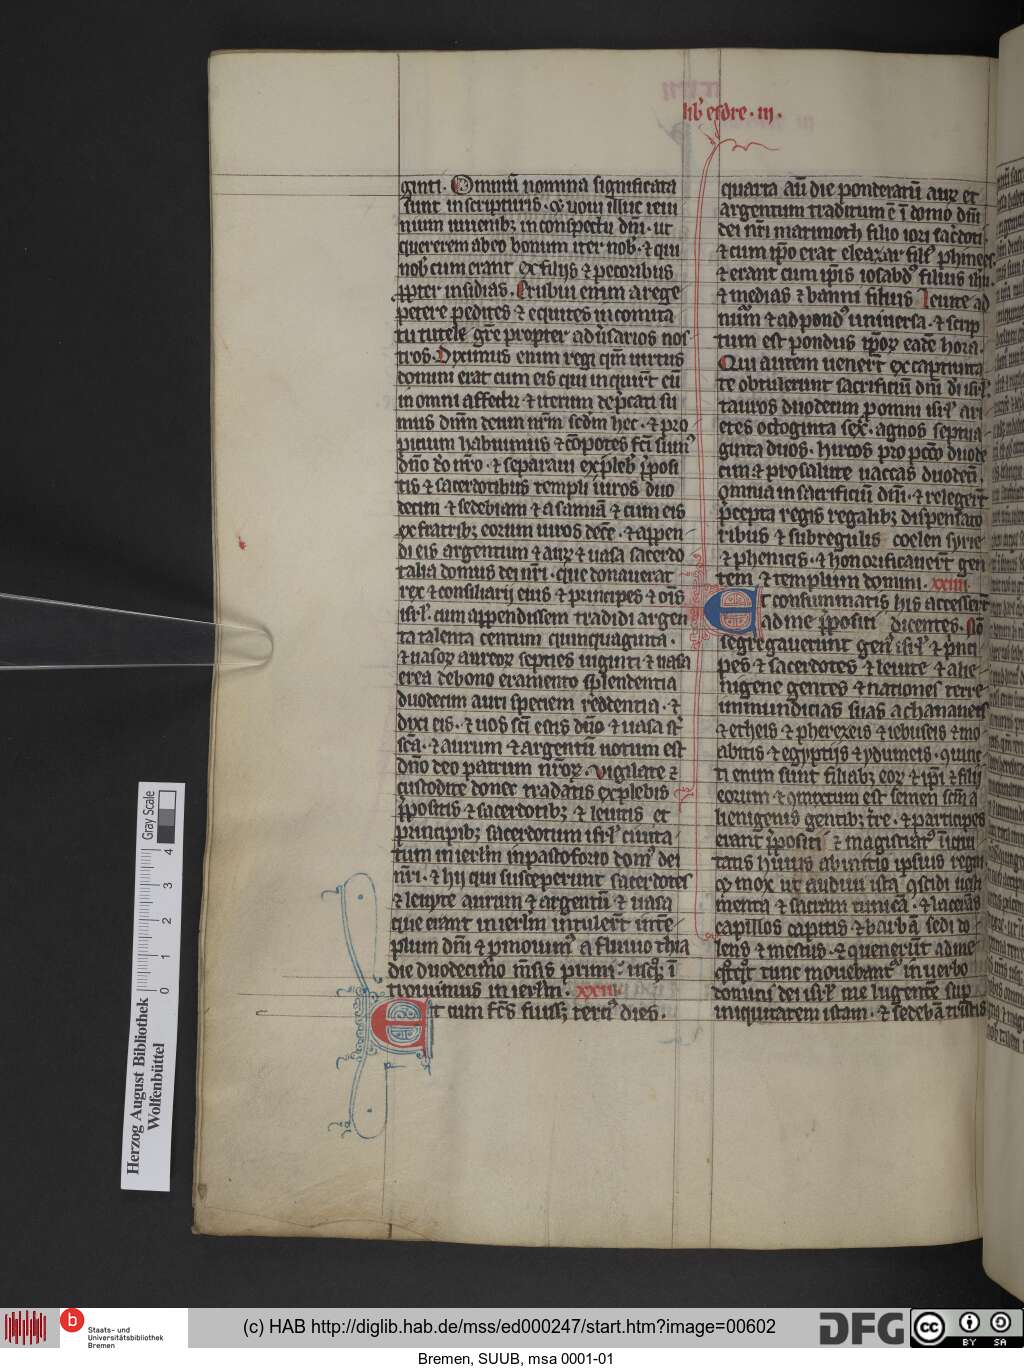 lib' esdre · iii ·
ginti · Omniū nomina significata
sunt in scripturis ·
nium iuuenib; in conspectu dnī · ut
quererem abeo bonum iter nob' · ⁊ qui
nob' cum erant ex filijs ⁊ pecoribus
ꝓpter insidias · Erubui enim a rege
petere pedites ⁊ equites in comita
tu tutele gr̄e propter adu'sarios nos
tros · Diximus enim regi qm̄ uirtus
domini erat cum eis qui inquir̄t eū
in omni affectu ⁊ iterum dep̄cati su
mus dnm̄ deum nr̄m sedm hec · ⁊ pro
picium habuimus ⁊ cōpotes fc̄i sum'
dn̄o do nr̄o · ⁊ separaui ex pleb' p̄posi
tis ⁊ sacerdotibus templi uiros duo
decim ⁊ sedebiam ⁊ asamiā ⁊ cum eis
ex fratrib; eorum uiros decē · ⁊ appen
di eis argentum ⁊ auꝝ ⁊ uasa sacerdo
talia domus dei nr̄i · que donauerat
rex ⁊ consiliarij eius ⁊ principes ⁊ om̄s
isr̄l · cum appendissem tradidi argen
ti talenta centum quinquaginta ·
⁊ uasoꝝ aureoꝝ septies uiginti ⁊ uasa
erea de bono eramento splendentia
duodecim auri speciem reddentia · ⁊
dixi eis · ⁊ uos sc̄i estis dn̄o ⁊ uasa st̄
sc̄a · ⁊ aurum ⁊ argentū uotum est
dn̄o deo patrum nr̄oꝝ · Vigilate ⁊
custodite donec tradatis ex plebis
p̄positis ⁊ sacerdotib; ⁊ leuitis et
principib; sacerdotum isr̄l ciuita
tum in ierl'm in pastoforio dom' dei
nr̄i · ⁊ hij qui susceperunt sacerdotes
⁊ leuite aurum ⁊ argentū ⁊ uasa
que erant in ierl'm intuler̄t in tē
plum dnī ⁊ ꝓmouim' a fluuio thia
die duodecimo m̄sis primi · usqꝫ ī
troiuimus in ierl'm · xxii
Et cum fc̄s fuiss; terti' dies ·
quarta aū die ponderatū auꝝ et
argentum traditum ē ī domo dnī
dei nr̄i marimoth filio iori sac̄doti
⁊ cum ip̄o erat eleazar fili' phinees
⁊ erant cum ip̄is iosabd' filius ihu
⁊ medias ⁊ banni filius leuite ad
num̄ ⁊ ad pond' uniuersa · ⁊ scrip
tum est pondus ip̄oꝝ eadē hora ·
Qui autem uener̄t ex captiuita
te obtulerunt sacrificiū dnī di isr̄l
tauros duodecim ꝓ omni isr̄l ari
etes octoginta sex · agnos septua
ginta duos · hircos pro pcc̄o duode
cim ⁊ pro salute uaccas duodeci
omnia in sacrificiū dnī · ⁊ releger̄t
p̄cepta regis regalib; dispensato
ribus ⁊ subregulis coelen syrie
⁊ phenicis · ⁊ honorificauer̄t gen
tem ⁊ templum domini · xxiii
Et consummatis his accesser̄t
ad me p̄positi dicentes · Nō
segregauerunt gen' isr̄l ⁊ p̄nci
pes ⁊ sacerdotes ⁊ leuite ⁊ alie
nigene gentes ⁊ nationes terre
immundicias suas a chananeis
⁊ etheis ⁊ pherezeis ⁊ iebuseis ⁊ mo
abitis ⁊ egyptijs ⁊ ydumeis · qiunc
ti enim sunt filiab; eoꝝ ⁊ ip̄i ⁊ filij
eorum ⁊ ꝯmixtum est semen sc̄m a
lienigenis gentib; tr̄e · ⁊ participes
erant p̄positi ⁊ magistrat' iniqui
tatis hui'us ab initio ipsius regni
mox ut audiui ista ꝯscidi uesti
menta ⁊ sacram tunicā · ⁊ lacerās
capillos capitis ⁊ barbā sedi do
lens ⁊ mestus · ⁊ ꝯuenerūt ad me
qtqt tunc mouebant' in uerbo
domini dei isr̄l me lugente sup
iniquitatem istam · ⁊ sedebā tristis
Gray Scale
0 1 2 3 4
Herzog August Bibliothek
Wolfenbüttel
b
Staats- und
Universitätsbibliothek
Bremen
(c) HAB http://diglib.hab.de/mss/ed000247/start.htm?image=00602
DFG
cc BY SA
Bremen, SUUB, msa 0001-01